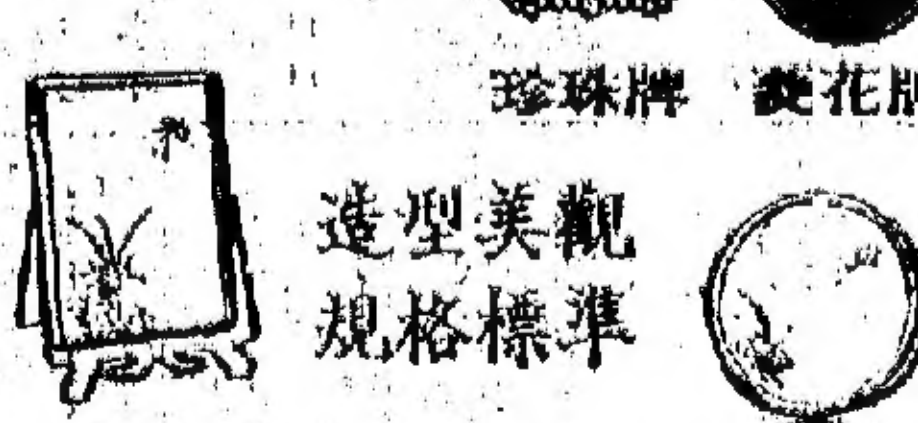 珍珠牌 菱花牌
造型美觀
規格標準